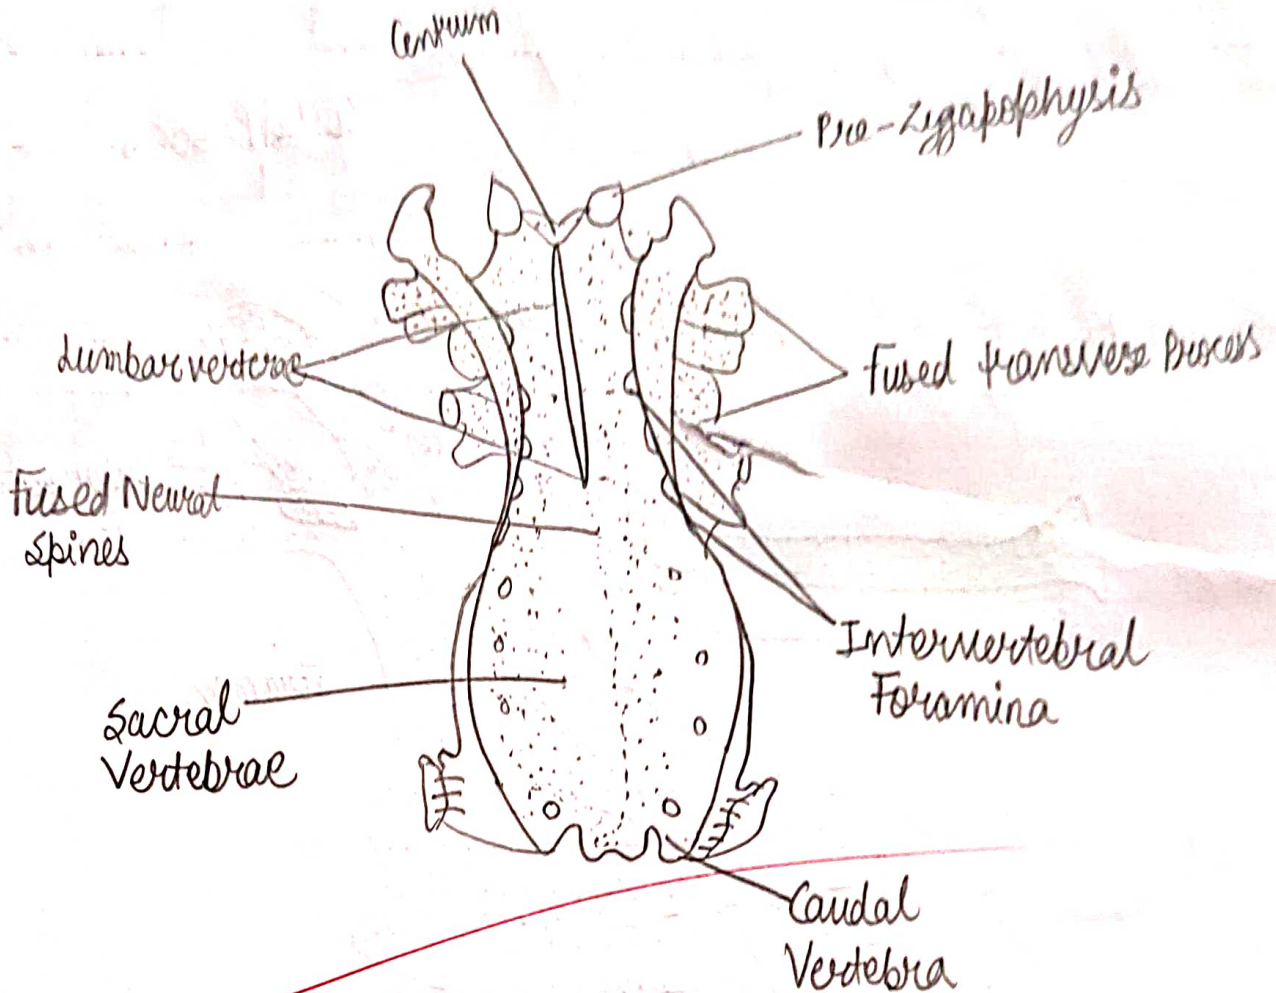 Centrum
Pre-Zygapophysis
Lumbar verterae
Fused transverse Process
Fused Neural
Spines
Intervertebral
Foramina
Sacral
Vertebrae
Caudal
Vertebra